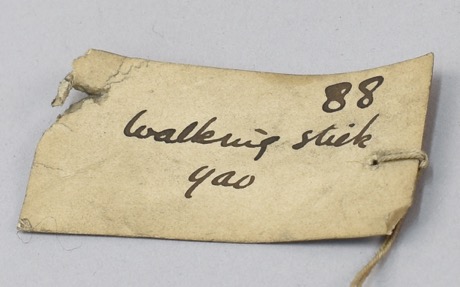 88
Walking stick
yao